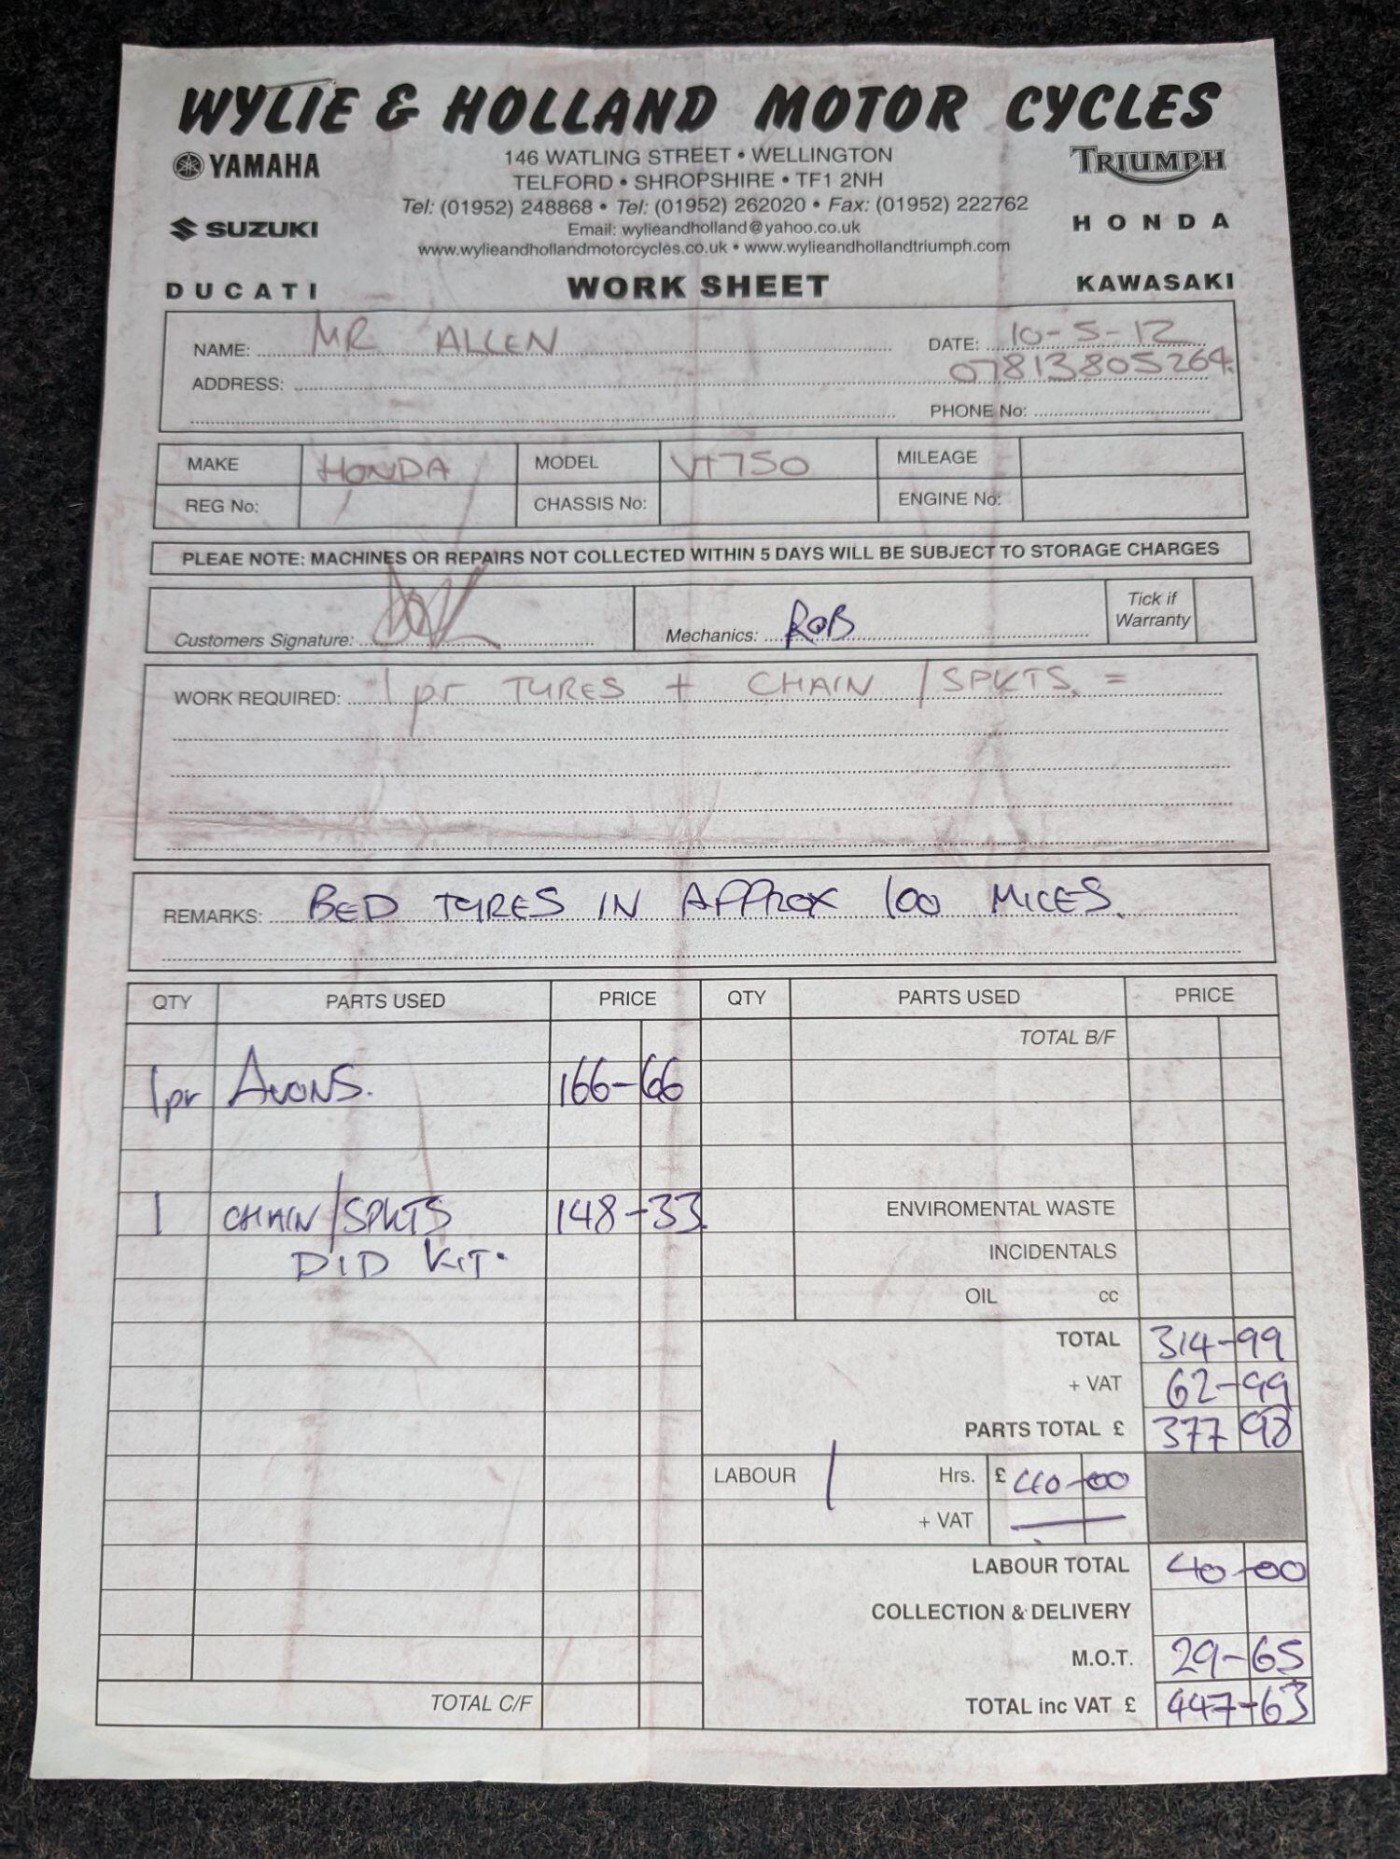 WYLIE & HOLLAND MOTOR CYCLES
YAMAHA
146 WATLING STREET • WELLINGTON
TRIUMPH
TELFORD • SHROPSHIRE • TF1 2NH
Tel: (01952) 248868 • Tel: (01952) 262020 • Fax: (01952) 222762
SUZUKI
Email: wylieandholland@yahoo.co.uk
HONDA
www.wylieandhollandmotorcycles.co.uk • www.wylieandhollandtriumph.com
DUCATI
WORK SHEET
KAWASAKI
NAME: MR ALLEN DATE: 10-5-12
ADDRESS: 07813805264
PHONE No:
MAKE HONDA MODEL VT750 MILEAGE
REG No: CHASSIS No: ENGINE No:
PLEAE NOTE: MACHINES OR REPAIRS NOT COLLECTED WITHIN 5 DAYS WILL BE SUBJECT TO STORAGE CHARGES
Customers Signature: Mechanics: ROB Tick if Warranty
WORK REQUIRED: 1 pr TYRES + CHAIN / SPKTS. =
REMARKS: BED TYRES IN APPROX 100 MILES.
QTY PARTS USED PRICE QTY PARTS USED PRICE
TOTAL B/F
1pr AVONS. 166-66
1 CHAIN/SPKTS 148-33 ENVIROMENTAL WASTE
DID KIT. INCIDENTALS
OIL cc
TOTAL 314-99
+ VAT 62-99
PARTS TOTAL £ 377 98
LABOUR 1 Hrs. £ 40-00
+ VAT —
LABOUR TOTAL 40-00
COLLECTION & DELIVERY
M.O.T. 29-65
TOTAL C/F TOTAL inc VAT £ 447-63